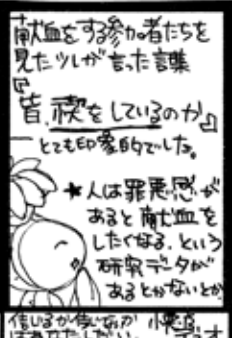 献血をする参加者たちを
見たツレが言った言葉
『
皆、禊をしているのか』
とても印象的でした。
★人は罪悪感が
あると献血を
したくなる、という
研究データが
あるとかないとか
信じるか信じないか